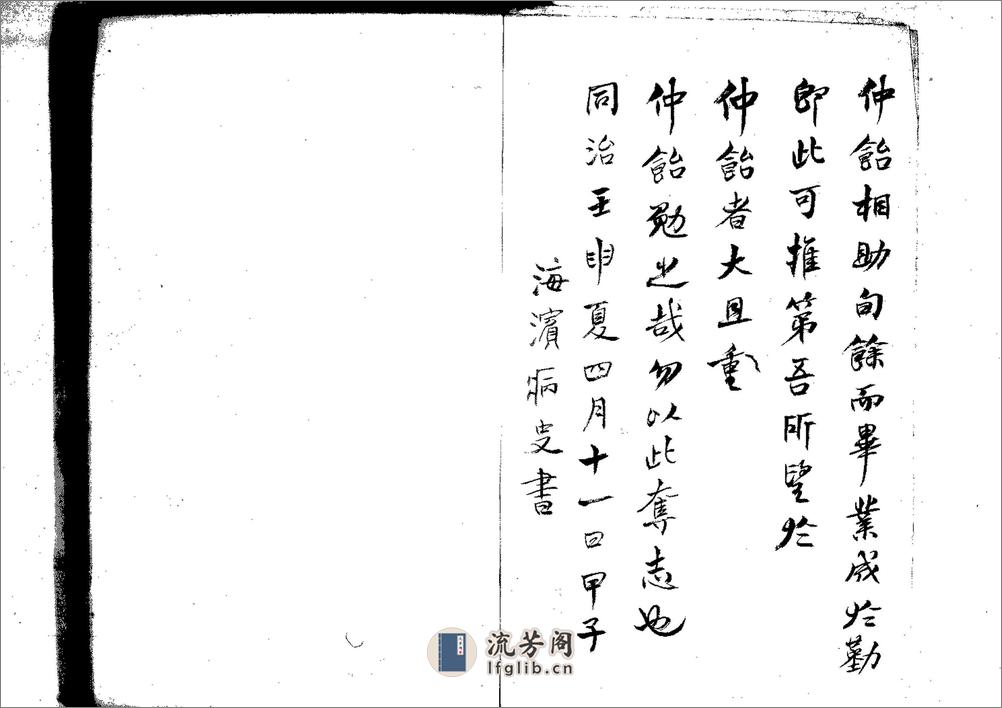 仲飴相助旬餘而畢業成於勤
即此可推第吾所望於
仲飴者大且重
仲飴勉之哉勿以此奪志也
同治壬申夏四月十一日甲子
海濱病史書
流芳阁
lfglib.cn